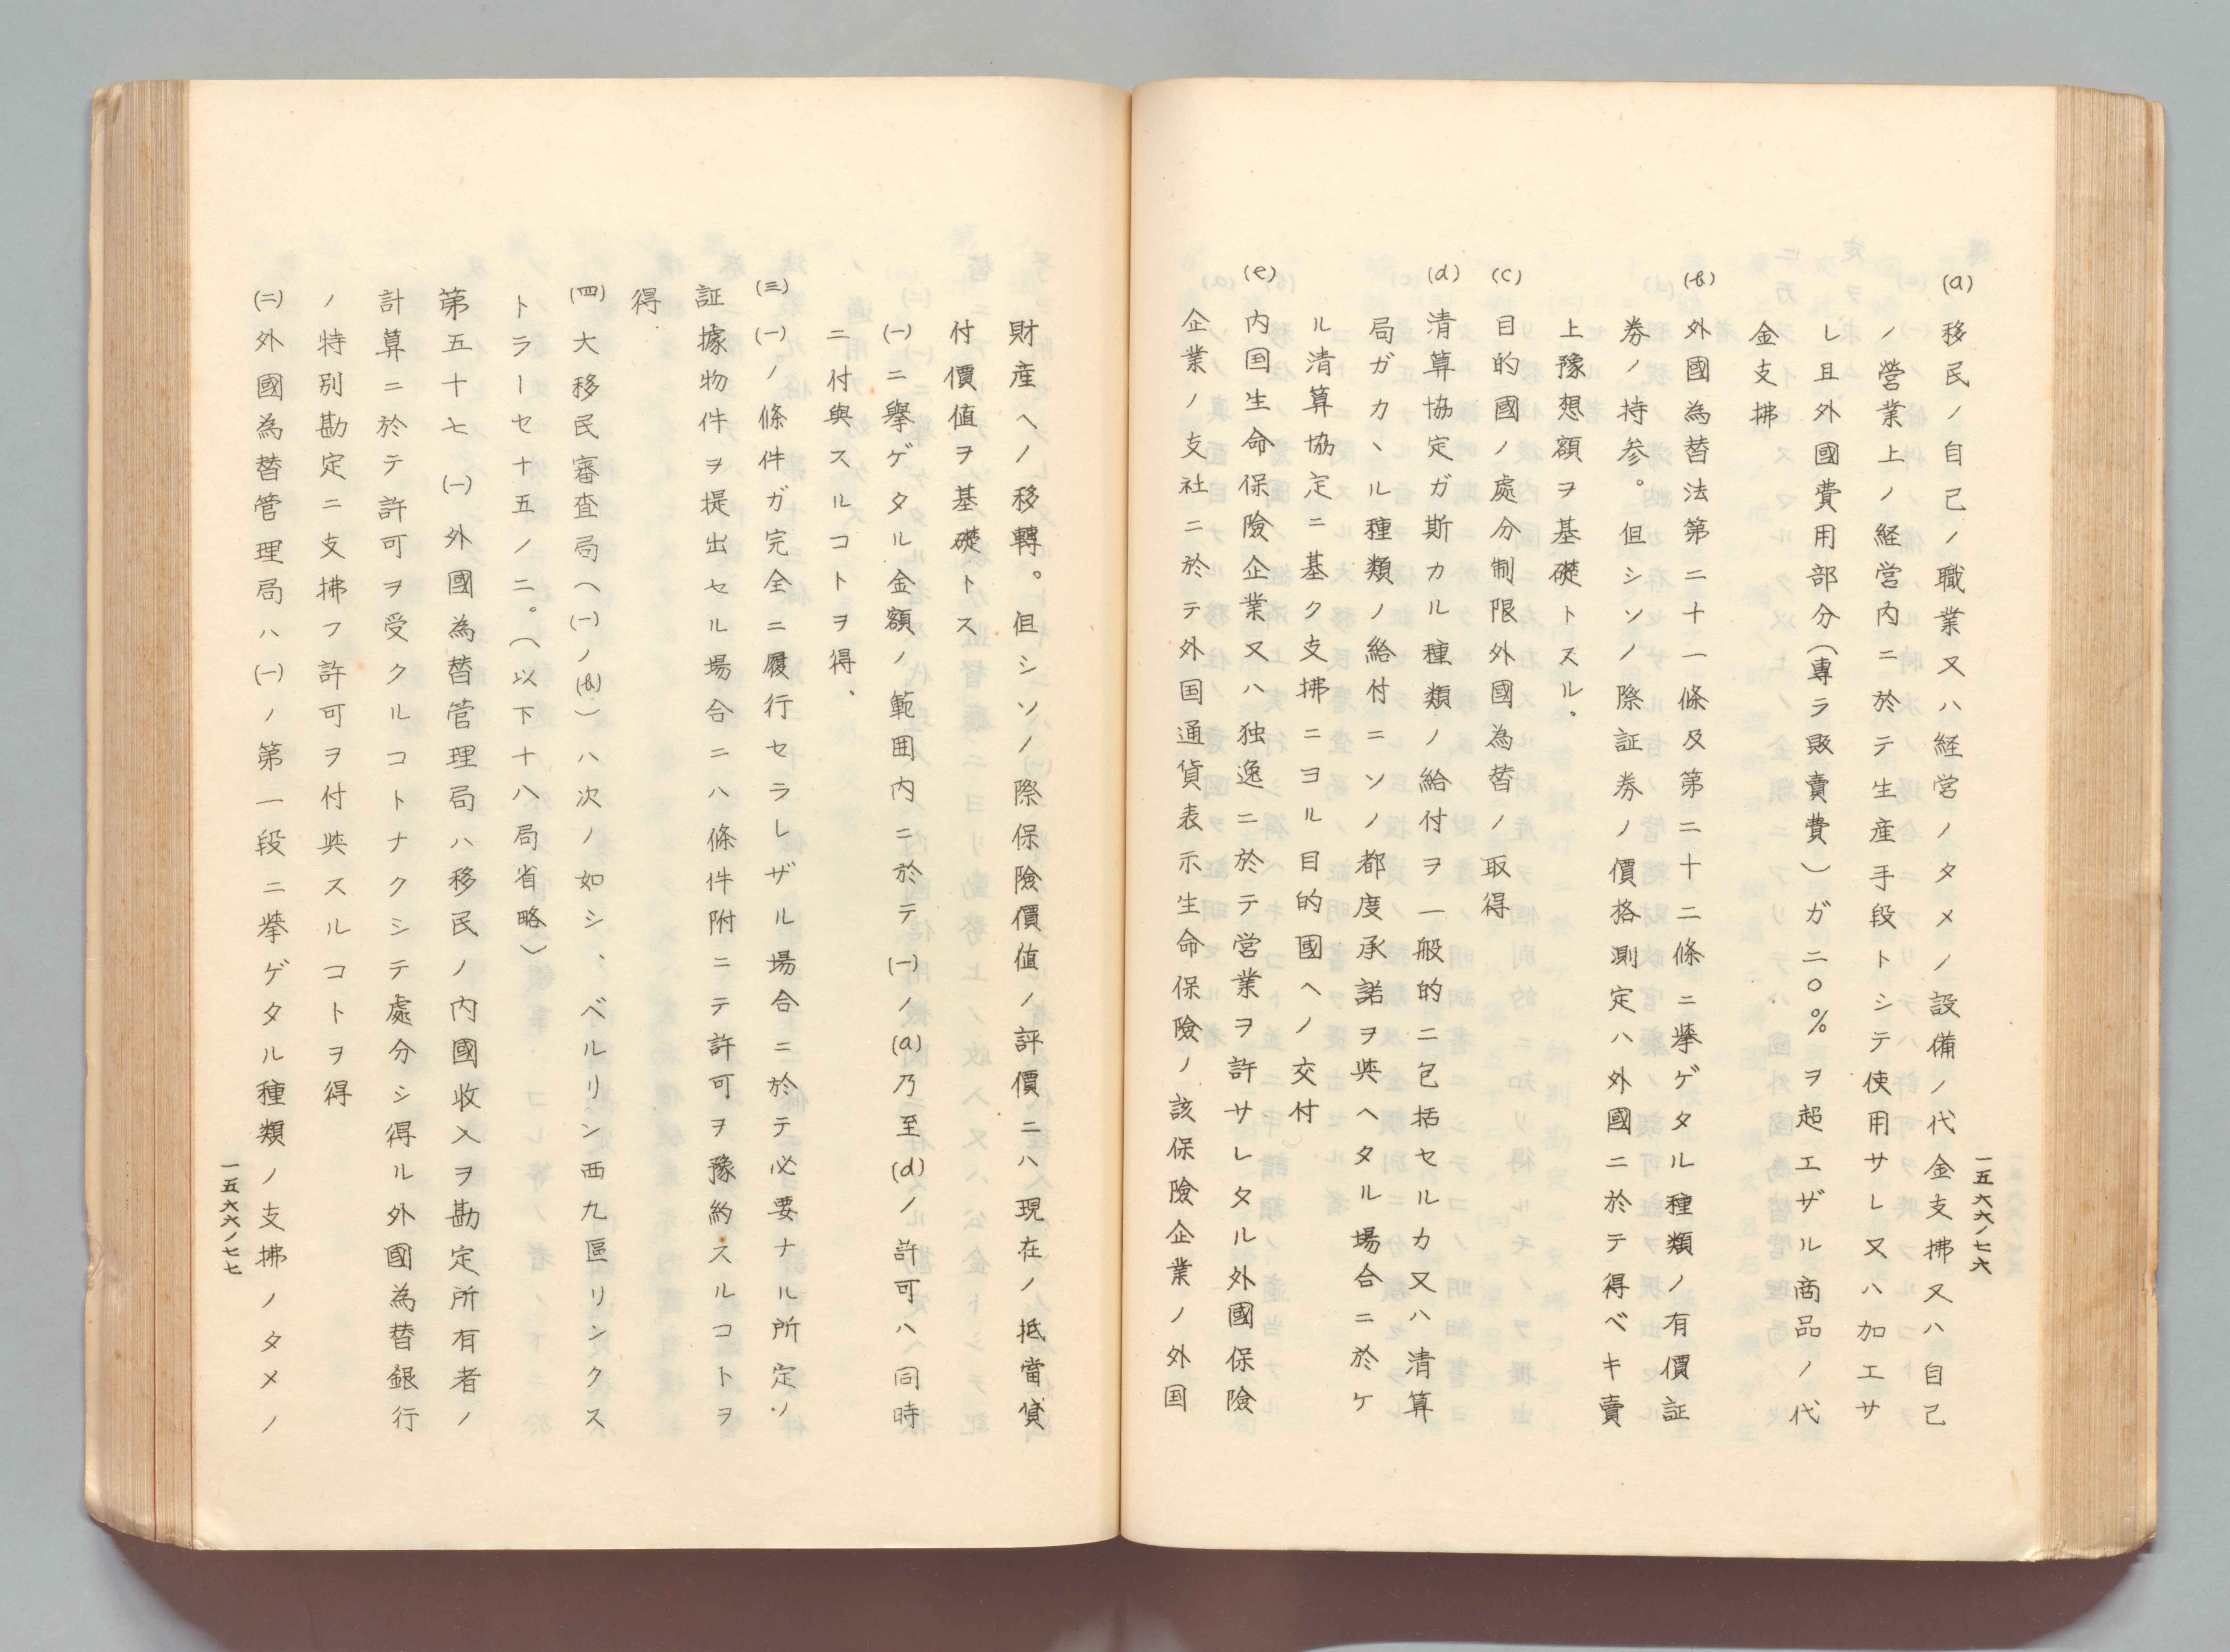 一五六六ノ七六
(a) 移民ノ自己ノ職業又ハ経営ノタメノ設備ノ代金支拂又ハ自己
ノ營業上ノ経営内ニ於テ生産手段トシテ使用サレ又ハ加エサ
レ且外國費用部分(專ラ販賣費)ガ二〇%ヲ超エザル商品ノ代
金支拂
(b) 外國為替法第二十一條及第二十二條ニ挙ゲタル種類ノ有價証
券ノ持参。但シソノ際証券ノ價格測定ハ外國ニ於テ得ベキ賣
上豫想額ヲ基礎トスル.
(c) 目的國ノ處分制限外國為替ノ取得
(d) 清算協定ガ斯カル種類ノ給付ヲ一般的ニ包括セルカ又ハ清算
局ガカヽル種類ノ給付ニソノ都度承諾ヲ與ヘタル場合ニ於ケ
ル清算協定ニ基ク支拂ニヨル目的國ヘノ交付
(e) 内国生命保險企業又ハ独逸ニ於テ営業ヲ許サレタル外國保險
企業ノ支社ニ於テ外国通貨表示生命保險ノ該保險企業ノ外国
財産ヘノ移轉。但シソノ際保險價值ノ評價ニハ現在ノ抵當貸
付價值ヲ基礎トス
(一)ニ擧ゲタル金額ノ範囲内ニ於テ(一)ノ(a)乃至(d)ノ許可ハ同時
ニ付與スルコトヲ得、
(三) (一)。ノ條件ガ完全ニ履行セラレザル場合ニ於テ必要ナル所定ノ
証據物件ヲ提出セル場合ニハ條件附ニテ許可ヲ豫約スルコトヲ
得
(四) 大移民審査局(一)ノ(b)ハ次ノ如シ、ベルリン西九區リンクス
トラーセ十五ノ二。(以下十八局省略)
第五十七 (一) 外國為替管理局ハ移民ノ内國收入ヲ勘定所有者ノ
計算ニ於テ許可ヲ受クルコトナクシテ處分シ得ル外國為替銀行
ノ特別勘定ニ支拂フ許可ヲ付與スルコトヲ得
(二) 外國為替管理局ハ(一)ノ第一段ニ挙ゲタル種類ノ支拂ノタメノ
一五六六ノ七七